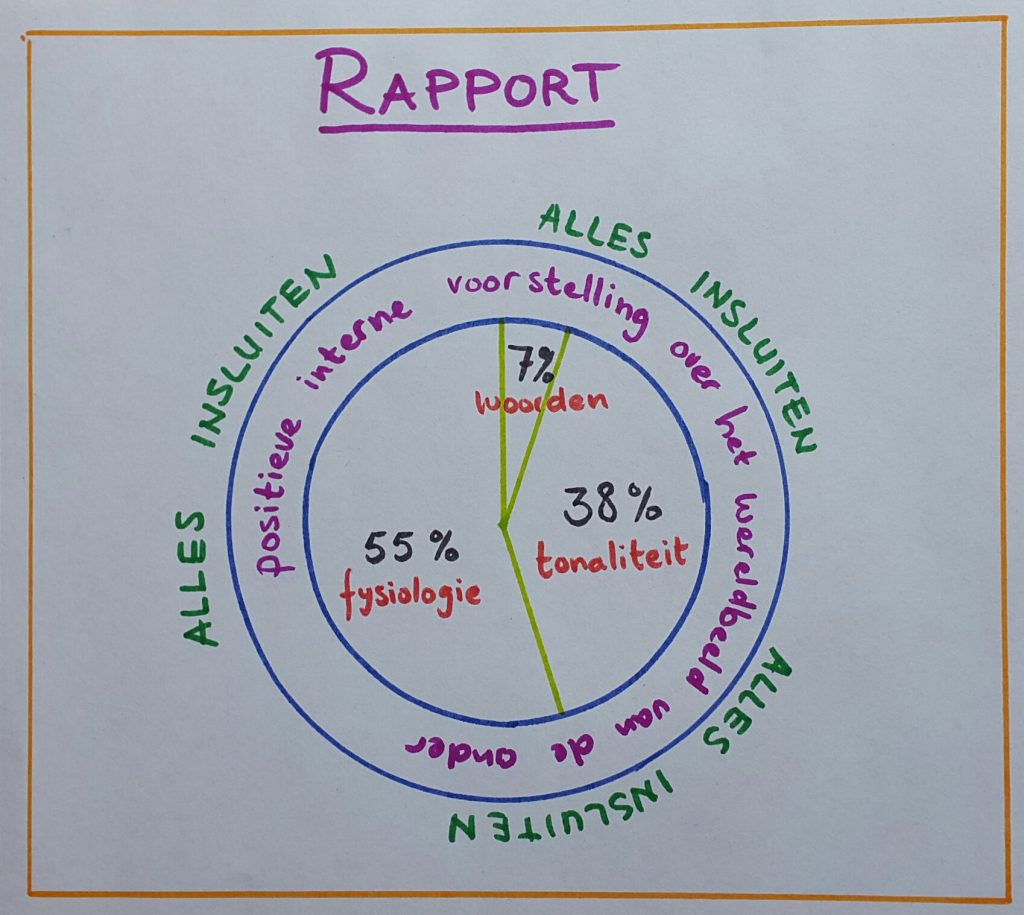 RAPPORT
ALLES INSLUITEN
ALLES INSLUITEN
ALLES INSLUITEN
positieve interne voorstelling over het wereldbeeld van de ander
7%
woorden
38%
tonaliteit
55%
fysiologie